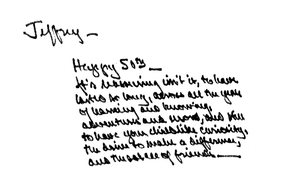 Jeffrey —
Happy 50th —
It's stunning isn't it, to have
lasted so long, across all the years
of learning and knowing,
adventures and more, and still
to have your childlike curiosity,
the desire to make a difference,
and the of friends